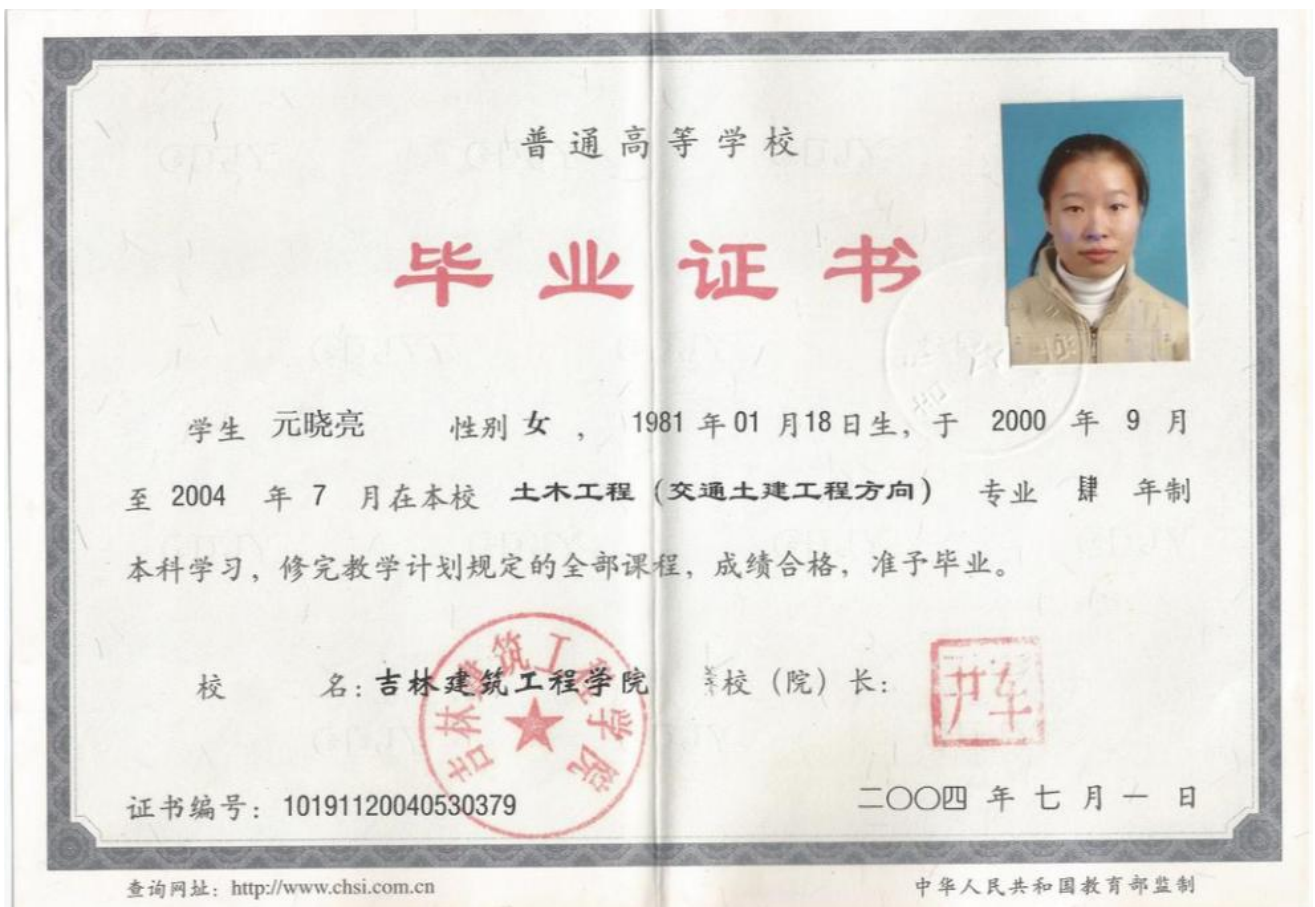 普通高等学校
毕业证书
学生 元晓亮 性别 女 , 1981 年 01 月 18 日生, 于 2000 年 9 月
至 2004 年 7 月在本校 土木工程(交通土建工程方向) 专业 肆 年制
本科学习,修完教学计划规定的全部课程,成绩合格,准予毕业。
校 名: 吉林建筑工程学院 校(院)长:
吉林建筑工程学院
证书编号: 10191120040530379
二〇〇四 年 七 月 一 日
查询网址: http://www.chsi.com.cn
中华人民共和国教育部监制